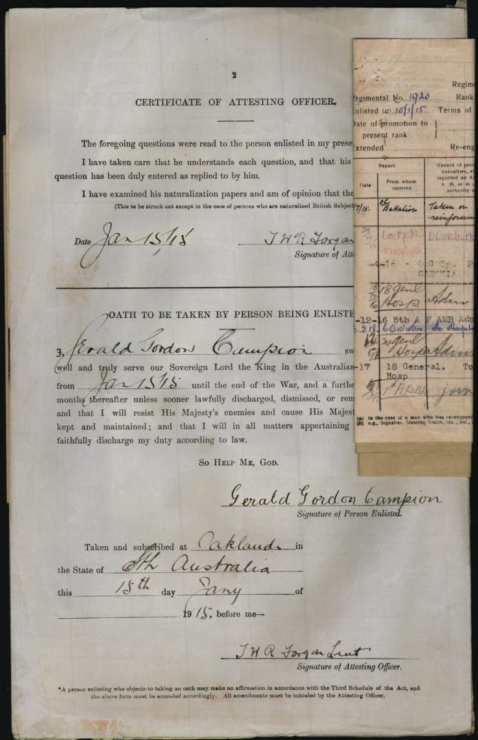 2
CERTIFICATE OF ATTESTING OFFICER.
The foregoing questions were read to the person enlisted in my prese
I have taken care that he understands each question, and that his
question has been duly entered as replied to by him.
I have examined his naturalization papers and am of opinion that the
(This to be struck out except in the case of persons who are naturalized British Subject
Date Jan 15/15 T W R Forgan
Signature of Atte
OATH TO BE TAKEN BY PERSON BEING ENLISTE
3, Gerald Gordon Campion sw
well and truly serve our Sovereign Lord the King in the Australian
from Jan 15 15 until the end of the War, and a furthe
months thereafter unless sooner lawfully discharged, dismissed, or rem
and that I will resist His Majesty's enemies and cause His Majest
kept and maintained; and that I will in all matters appertaining
faithfully discharge my duty according to law.
SO HELP ME, GOD.
Gerald Gordon Campion
Signature of Person Enlisted.
Taken and subscribed at Oaklands in
the State of Sth Australia
this 15th day Jany of
1915, before me—
T W R Forgan Lieut
Signature of Attesting Officer.
*A person enlisting who objects to taking an oath may make an affirmation in accordance with the Third Schedule of the Act, and
the above form must be amended accordingly. All amendments must be initialed by the Attesting Officer.
Regim
Regimental No. 1920 Rank
Enlisted 10/1/15 Terms of
Date of promotion to
present rank
Extended Re-eng
Report
Date From whom
received
Battalion Taken on
reinforcem
18 Genl
Hosp Adm
-12-16 5th A F AMB Adm
-17 18 General. To
Hosp